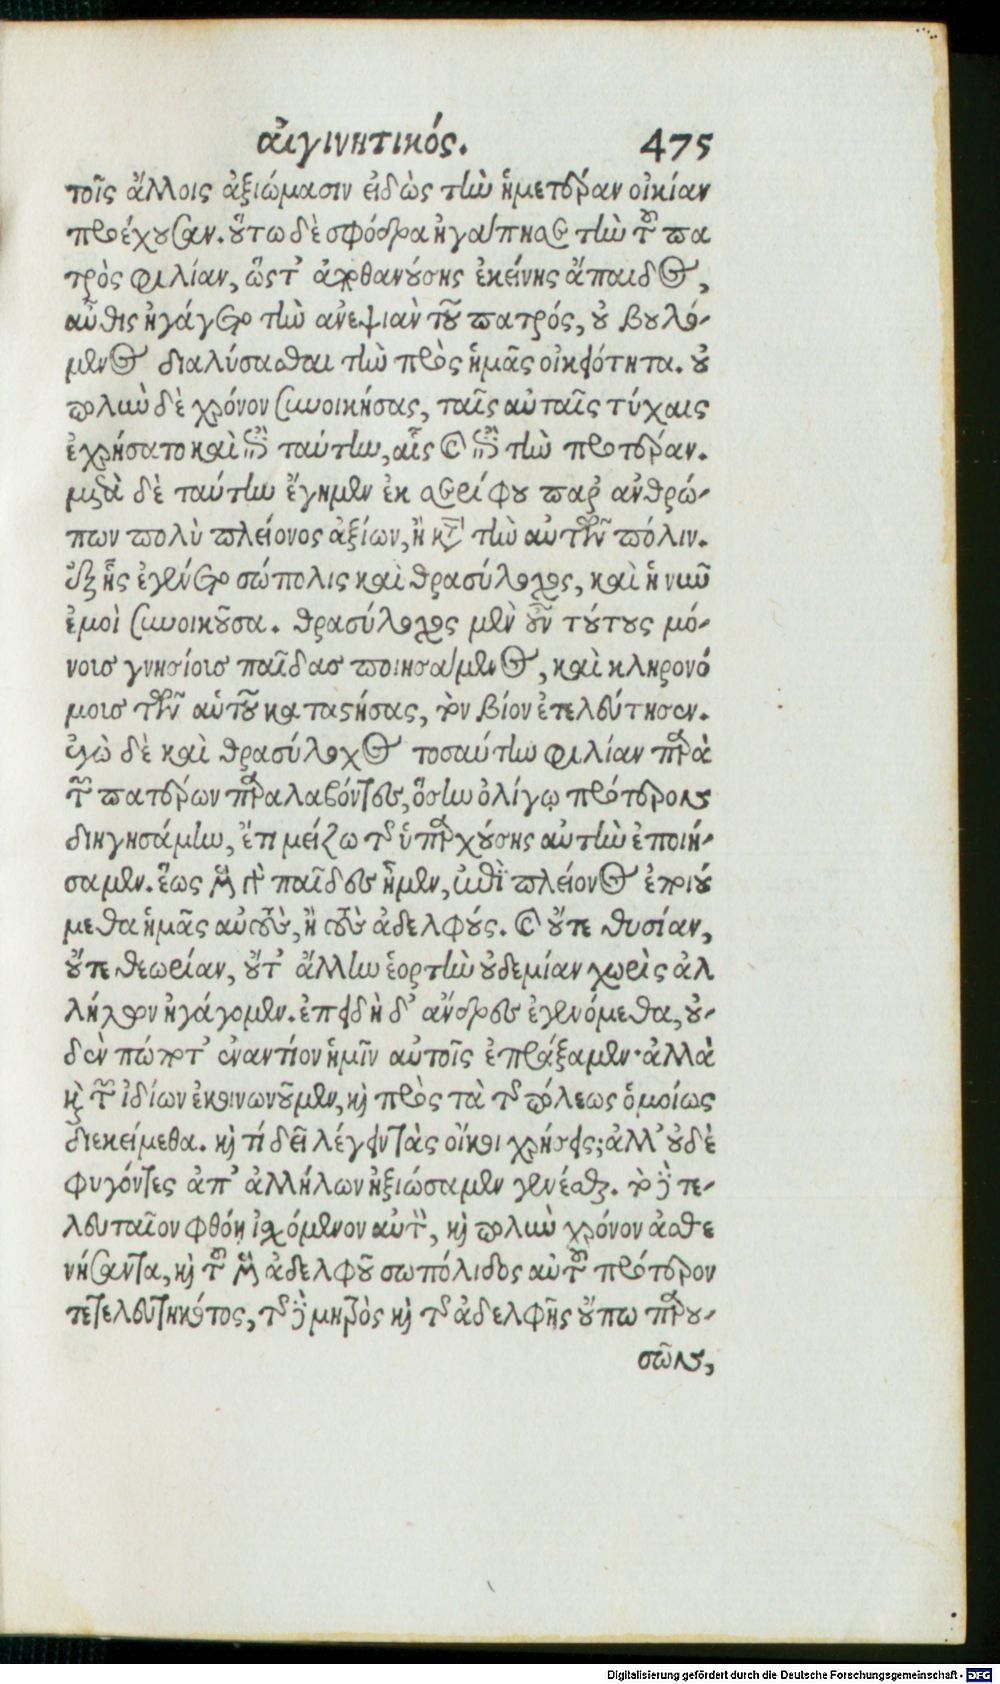 αἰγινητικός. 475
τοῖς ἄλλοις ἀξιώμασιν εἰδὼς τὴν ἡμετέραν οἰκίαν
προέχουσαν. οὕτω δὲ σφόδρα ἠγάπησε τὴν τοῦ πα
τρὸς φιλίαν, ὥςτ' ἀποθανούσης ἐκείνης ἄπαιδος,
αὖθις ἠγάγετο τὴν ἀνεψιὰν τοῦ πατρός, οὐ βουλό-
μενος διαλύσασθαι τὴν πρὸς ἡμᾶς οἰκειότητα. οὐ
πολὺν δὲ χρόνον συνοικήσας, ταῖς αὐταῖς τύχαις
ἐχρήσατο καὶ περὶ ταύτην, αἷς καὶ περὶ τὴν προτέραν.
μετὰ δὲ ταύτην ἔγημεν ἐκ σερίφου παρ' ἀνθρώ-
πων πολὺ πλείονος ἀξίων, ἢ κατὰ τὴν αὐτῶν πόλιν.
ἐξ ἧς ἐγένετο σώπολις καὶ θρασύλοχος, καὶ ἡ νῦν
ἐμοὶ συνοικοῦσα. θρασύλοχος μὲν οὖν τούτους μό-
νους γνησίους παῖδας ποιησάμενος, καὶ κληρονό
μους τῶν αὑτοῦ καταστήσας, τὸν βίον ἐτελεύτησεν.
ἐγὼ δὲ καὶ θρασύλοχος τοσαύτην φιλίαν παρὰ
τῶν πατέρων παραλαβόντες, ὅσην ὀλίγῳ πρότερον
διηγησάμην, ἔτι μείζω τῆς ὑπαρχούσης αὐτὴν ἐποιή-
σαμεν. ἕως μὲν γὰρ παῖδες ἦμεν, περὶ πλείονος ἐποιού
μεθα ἡμᾶς αὐτοὺς, ἢ τοὺς ἀδελφούς. καὶ οὔτε θυσίαν,
οὔτε θεωρίαν, οὔτ' ἄλλην ἑορτὴν οὐδεμίαν χωρὶς ἀλ
λήλων ἠγάγομεν. ἐπειδὴ δ' ἄνδρες ἐγενόμεθα, οὐ-
δὲν πώποτ' ἐναντίον ἡμῖν αὐτοῖς ἐπράξαμεν· ἀλλὰ
καὶ τῶν ἰδίων ἐκοινωνοῦμεν, καὶ πρὸς τὰ τῆς πόλεως ὁμοίως
διεκείμεθα. καὶ τί δεῖ λέγειν τὰς οἴκοι χρήσεις; ἀλλ' οὐδὲ
φυγόντες ἀπ' ἀλλήλων ἠξιώσαμεν γενέσθαι. τὸ δὲ τε-
λευταῖον φθόῃ ἰσχόμενον αὐτὸν, καὶ πολὺν χρόνον ἀσθε
νήσαντα, καὶ τοῦ μὲν ἀδελφοῦ σωπόλιδος αὐτοῦ πρότερον
τετελευτηκότος, τῆς δὲ μητρὸς καὶ τῆς ἀδελφῆς οὔπω παρου-
σῶν,
Digitalisierung gefördert durch die Deutsche Forschungsgemeinschaft - DFG